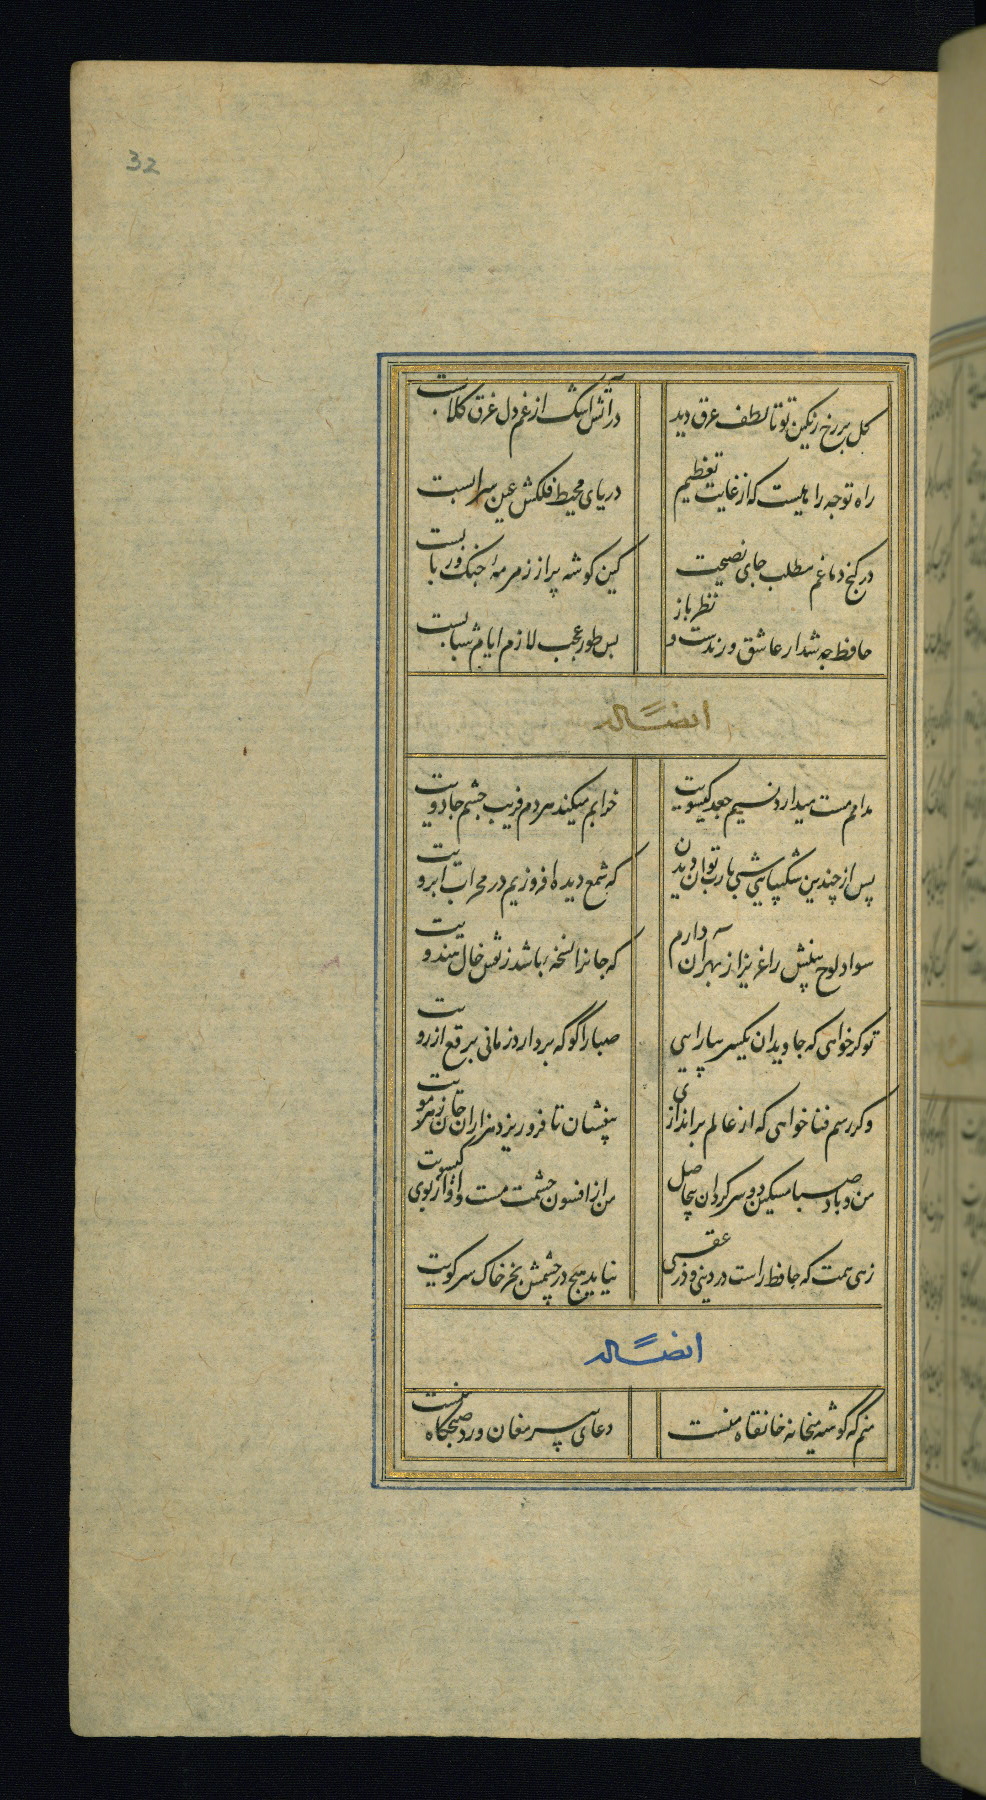 32
کل بر رخ رنکین تو تا لطف عرق دید
در آتش اشک از غم دل غرق کلابست
راه تو چه راهیست که از غایت تعظیم
دریای محیط فلکش عین سرابست
در کنج دماغم مطلب جای نصیحت
کین کوشه پر از زمزمهٔ چنک و ربابست
حافظ چه شد ار عاشق و رندست و نظرباز
بس طور عجب لازم ایام شبابست
ایضاً له
مدامم مست میدارد نسیم جعد کیسویت
خرابم میکند هر دم فریب چشم جادویت
پس از چندین شکیبایی شبی یارب توان دیدن
که شمع دیده افروزیم در محراب ابرویت
سواد لوح بینش را عزیز از بهر آن دارم
که جانرا نسخهٔ باشد ز نقش خال هندویت
تو کر خواهی که جاویدان یکسر بیارایی
صبا را کو که بردارد زمانی برقع از رویت
وکر رسم فنا خواهی که از عالم براندازی
بیفشان تا فرو ریزد هزاران جان ز هر مویت
من و باد صبا مسکین دو سرکردان بیحاصل
من از افسون چشمت مست و او از بوی کیسویت
زهی همت که حافظ راست در دینی و در عقبی
نیاید هیچ در چشمش بجز خاک سر کویت
ایضاً له
منم که کوشه میخانه خانقاه منست
دعای پیر مغان ورد صبحکاه منست